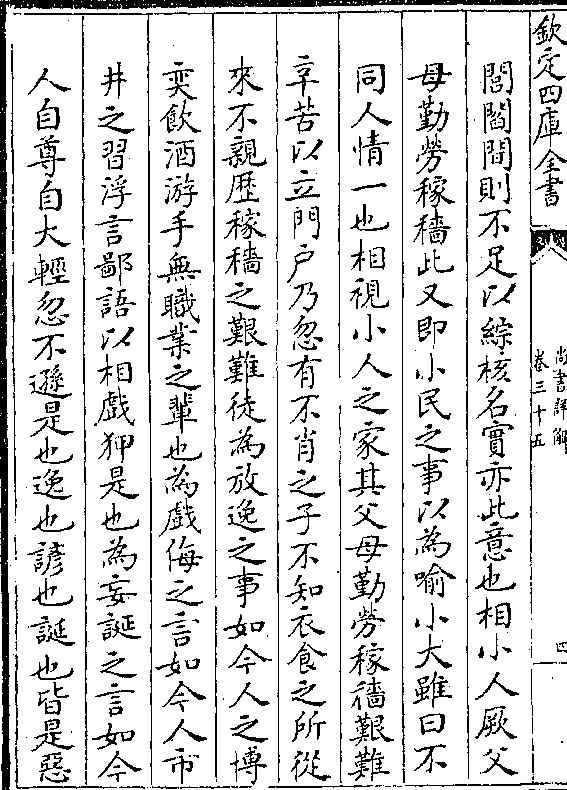 欽定四庫全書
尚書詳解
卷三十五
四
閭閻間則不足以綜核名實亦此意也相小人厥父
母勤勞稼穡此又即小民之事以為喻小大雖曰不
同人情一也相視小人之家其父母勤勞稼穡艱難
辛苦以立門户乃忽有不肖之子不知衣食之所從
來不親歴稼穡之艱難徒為放逸之事如今人之博
奕飲酒游手無職業之輩也為戲侮之言如今人市
井之習浮言鄙語以相戲狎是也為妄誕之言如今
人自尊自大輕忽不遜是也逸也諺也誕也皆是惡